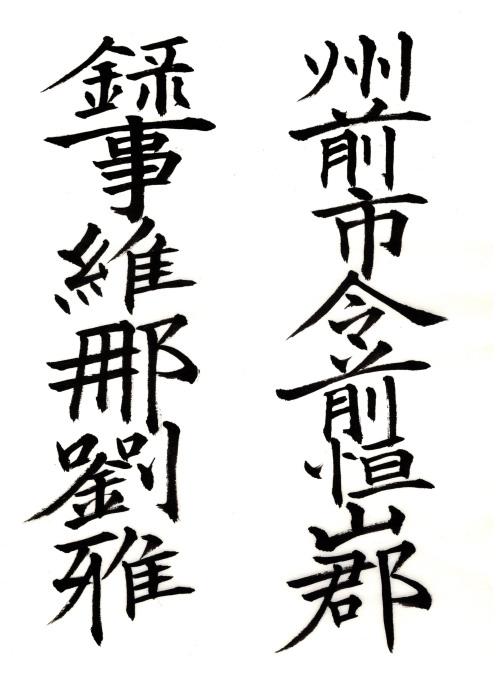 州前市令前恒山郡
録事維那劉雅